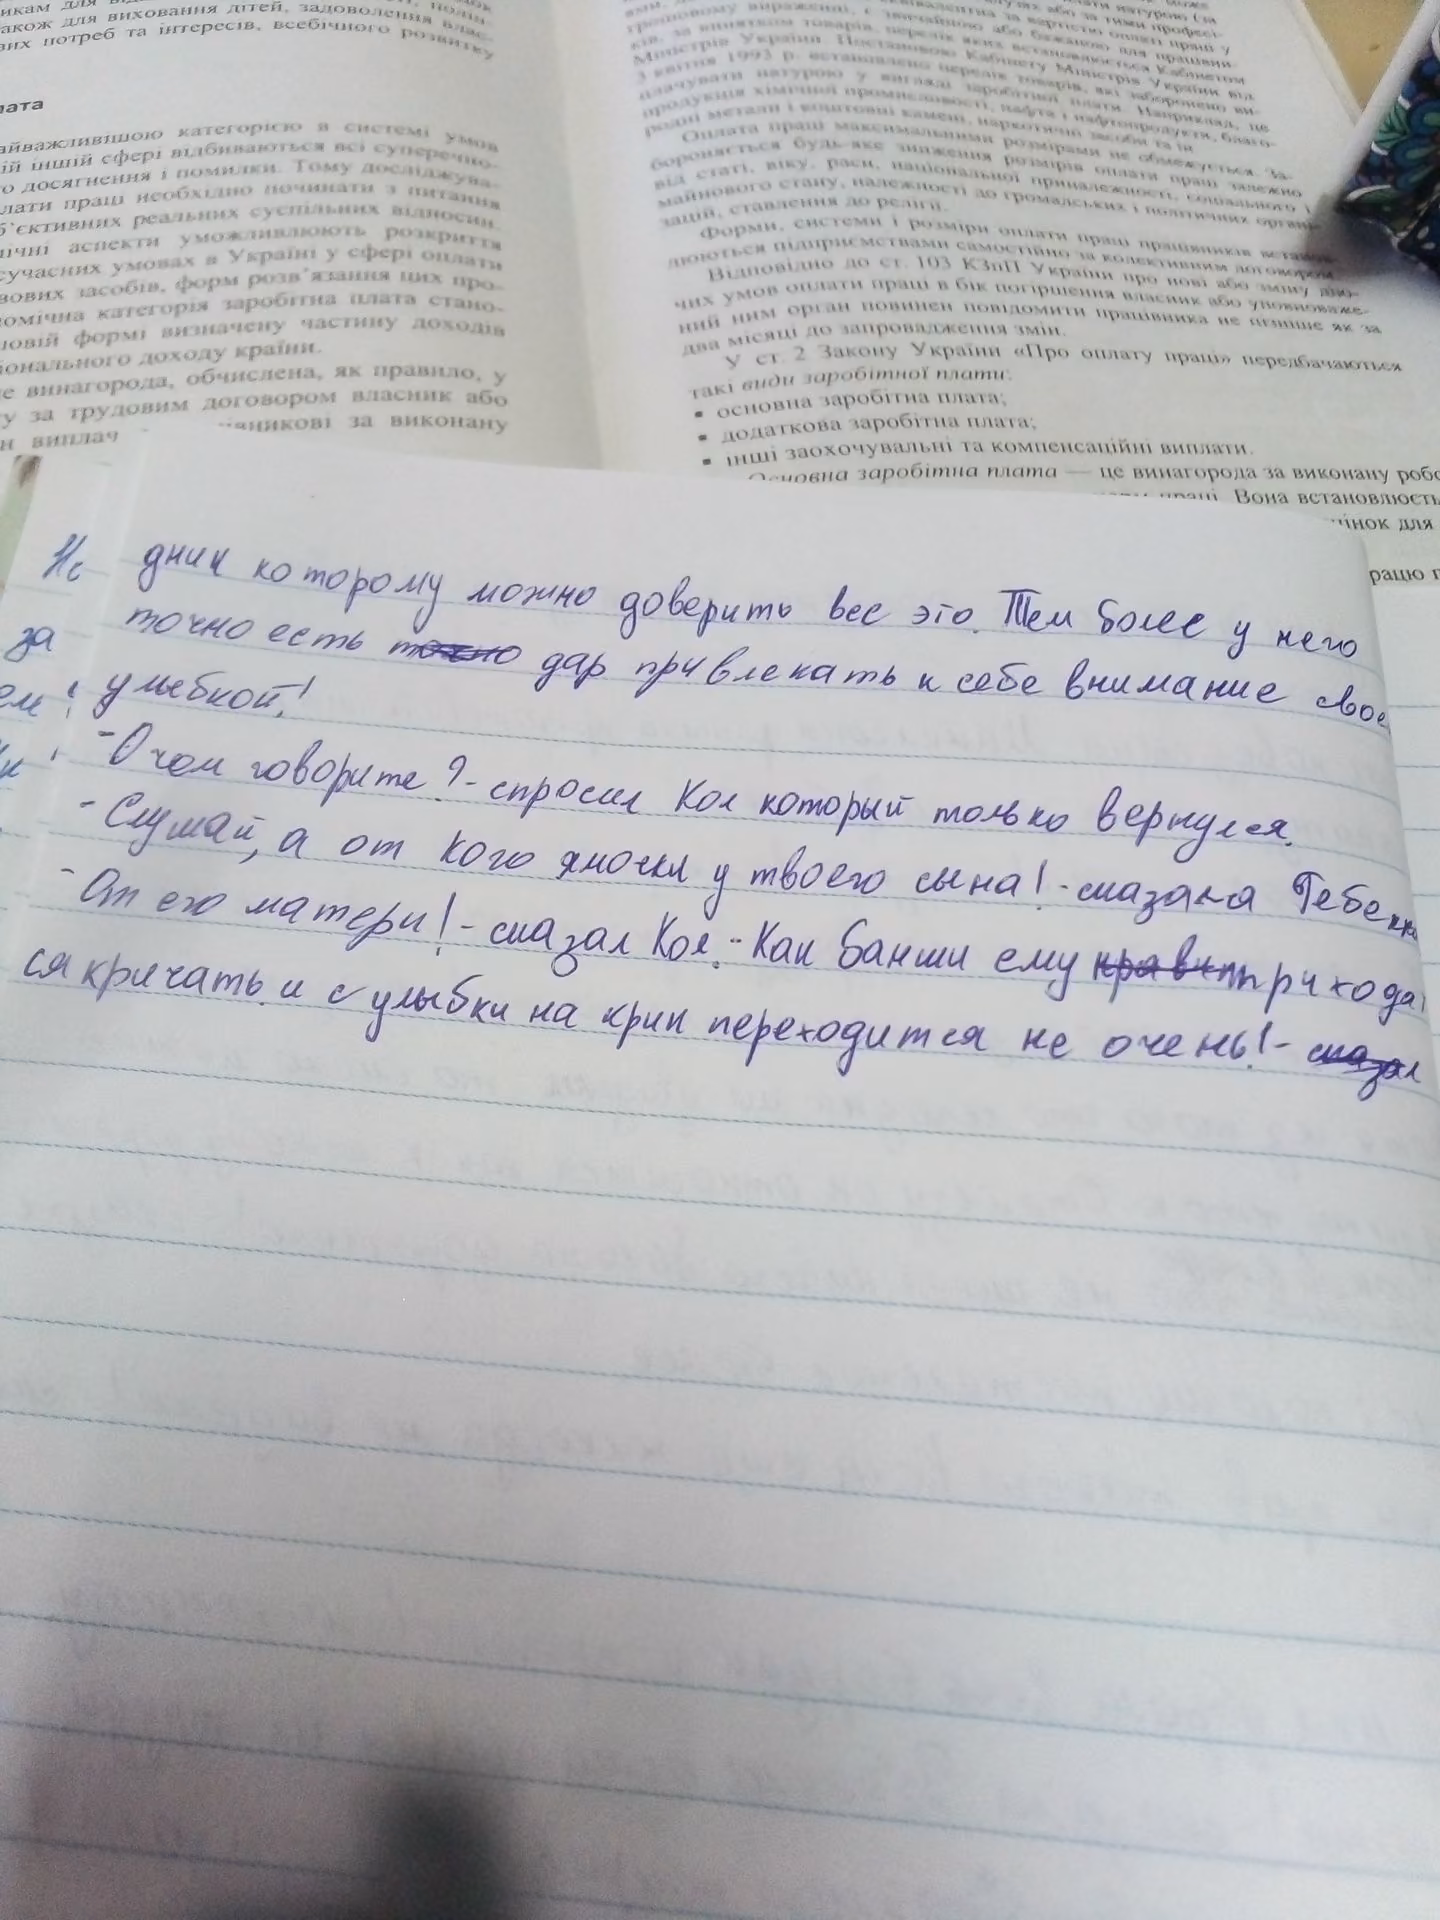 також для виховання дітей, задоволення влас-
них потреб та інтересів, всебічного розвитку
лата
айважливішою категорією в системі умов
ій іншій сфері відбиваються всі суперечно-
о досягнення і помилки. Тому досліджува-
лати праці необхідно починати з питання
б'єктивних реальних суспільних відносин.
ичні аспекти уможливлюють розкриття
сучасних умовах в Україні у сфері оплати
вових засобів, форм розв'язання цих про-
омічна категорія заробітна плата стано-
новій формі визначену частину доходів
іонального доходу країни.
е винагорода, обчислена, як правило, у
у за трудовим договором власник або
н виплач івникові за виконану
грошовому вираженні, є звичайною або бажаною для працівни-
ків, за винятком товарів, перелік яких встановлюється Кабінетом
Міністрів України. Постановою Кабінету Міністрів України від
3 квітня 1993 р. встановлено перелік товарів, які заборонено ви-
плачувати натурою у вигляді заробітної плати. Наприклад, це
продукція хімічної промисловості, нафта і нафтопродукти, благо-
родні метали і коштовні камені, наркотичні засоби та ін.
Оплата праці максимальними розмірами не обмежується. За-
бороняється будь-яке зниження розмірів оплати праці залежно
від статі, віку, раси, національної приналежності, соціального і
майнового стану, належності до громадських і політичних органі-
зацій, ставлення до релігії.
Форми, системи і розміри оплати праці працівників встанов-
люються підприємствами самостійно за колективним договором.
Відповідно до ст. 103 КЗпП України про нові або зміну дію-
чих умов оплати праці в бік погіршення власник або уповноваже-
ний ним орган повинен повідомити працівника не пізніше як за
два місяці до запровадження змін.
У ст. 2 Закону України «Про оплату праці» передбачаються
такі види заробітної плати:
▪ основна заробітна плата;
▪ додаткова заробітна плата;
▪ інші заохочувальні та компенсаційні виплати.
Основна заробітна плата — це винагорода за виконану робо
праці. Вона встановлюєть
інок для
рацю п
Не
за
ем!
дник которому можно доверить все это. Тем более у него
точно есть точно дар привлекать к себе внимание свое
улыбкой!
- О чом говорите? - спросил Кол который только вернулся.
- Слушай, а от кого ямочки у твоего сына! - сказала Ребекка
- От его матери! - сказал Кол. - Как банши ему нравит приходат
ся кричать и с улыбки на крик переходится не очень! - сказал